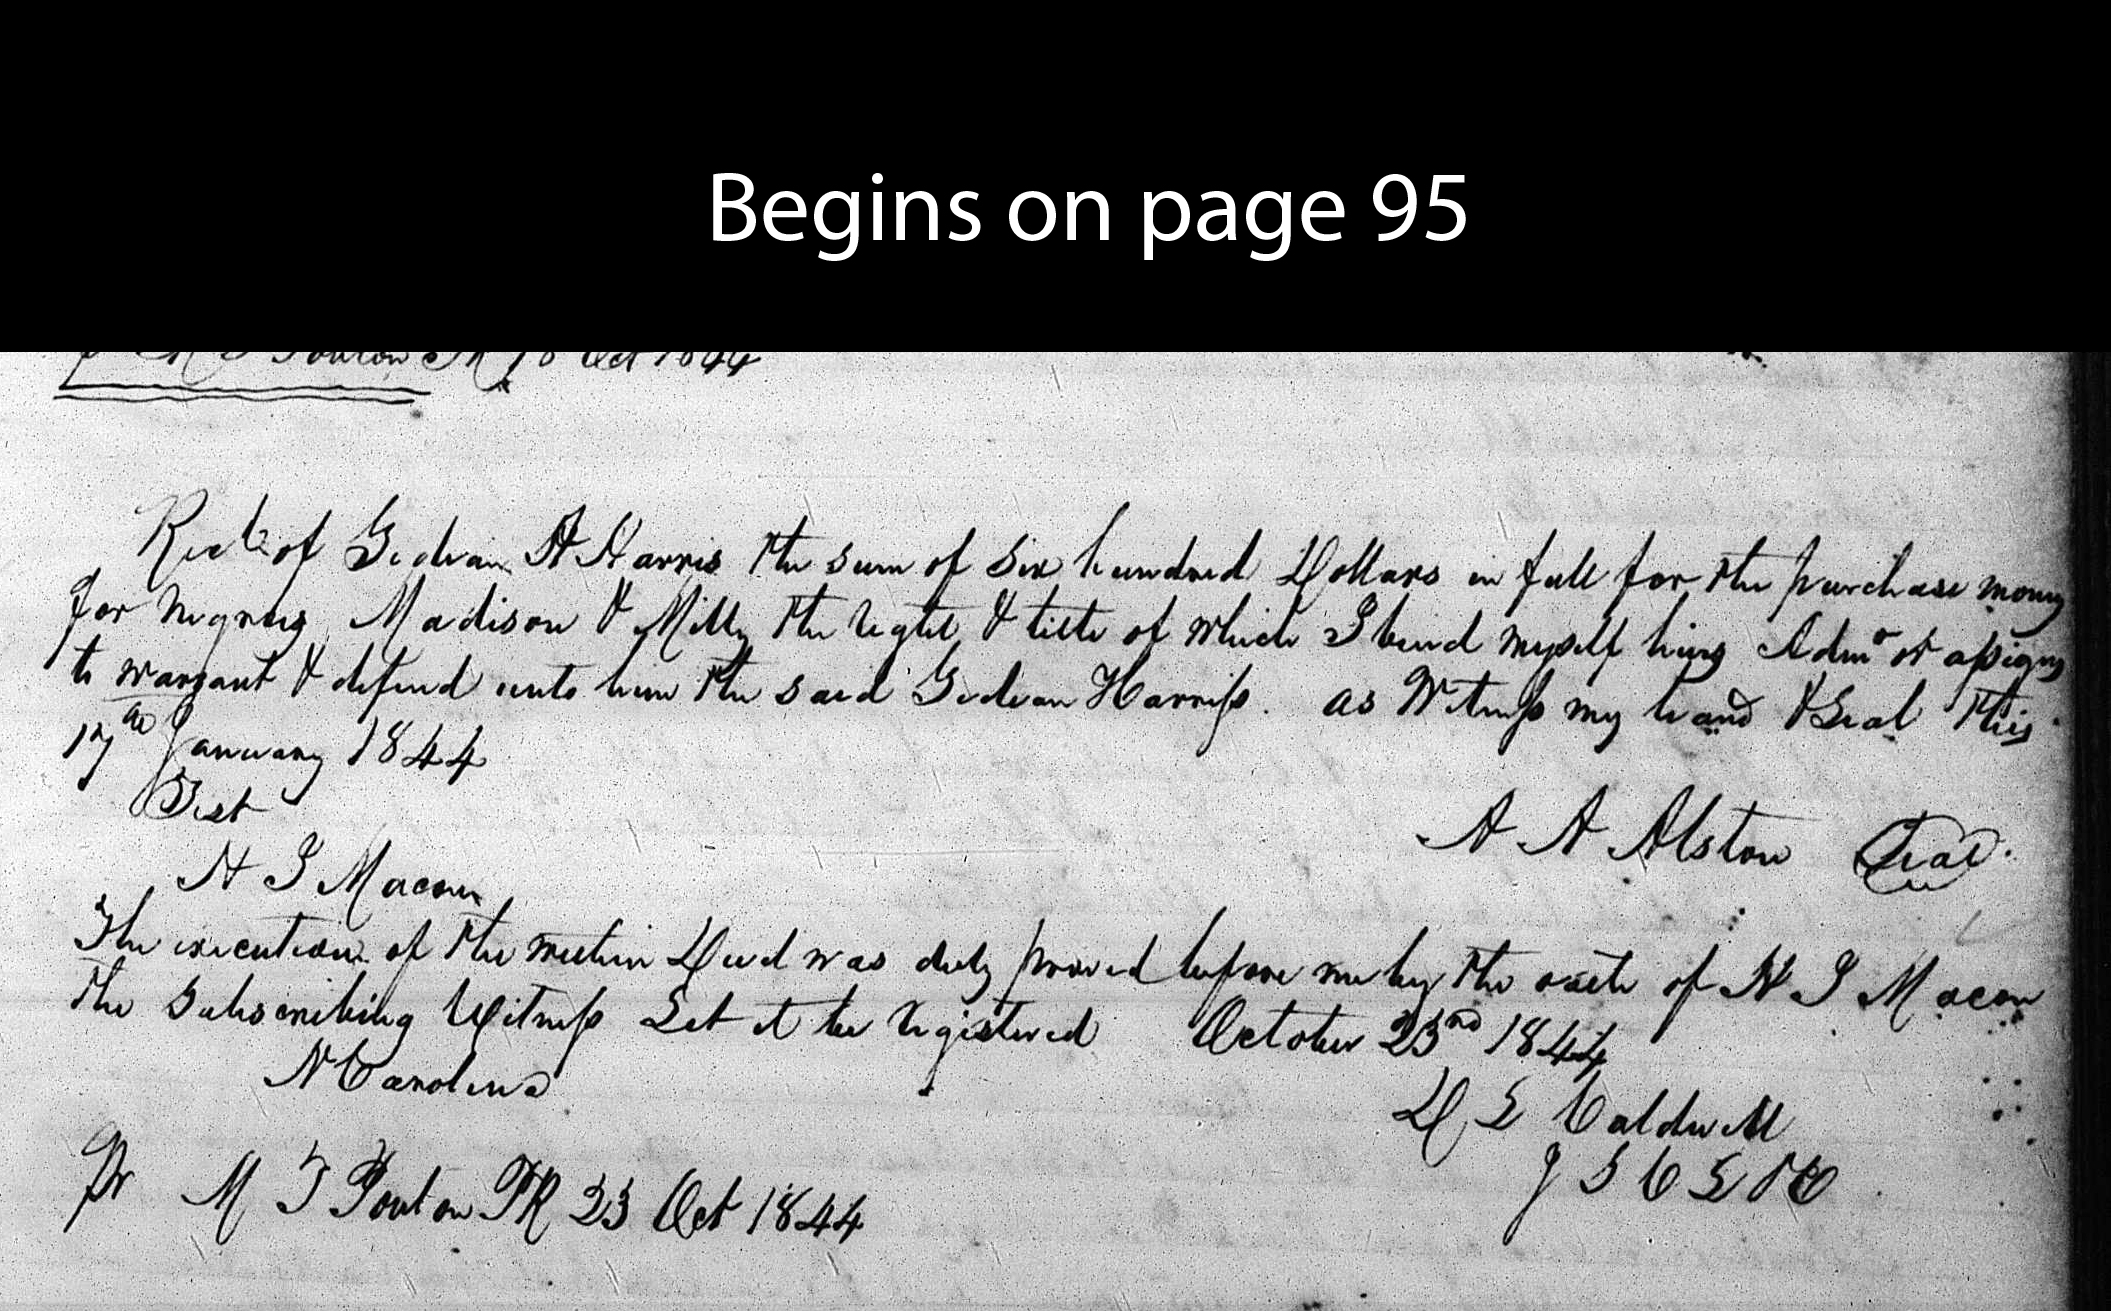 Begins on page 95
18 Oct 1844
Recd of Gideon A Harris the sum of Six hundred Dollars in full for the purchase money
for negroes Madison & Milly the right & title of which I bind myself heirs Admr or assigns
to warrant & defend unto him the said Gideon Harriss. as Witness my hand & Seal this
17th January 1844
Test
A A Alston Seal
N G Macon
The execution of the within Deed was duly proved before me by the oath of N G Macon
the Subscribing Witness Let it be registered October 23rd 1844
N Carolina
D F Caldwell
J S C L &C
Pr M T Ponton PR 23 Oct 1844